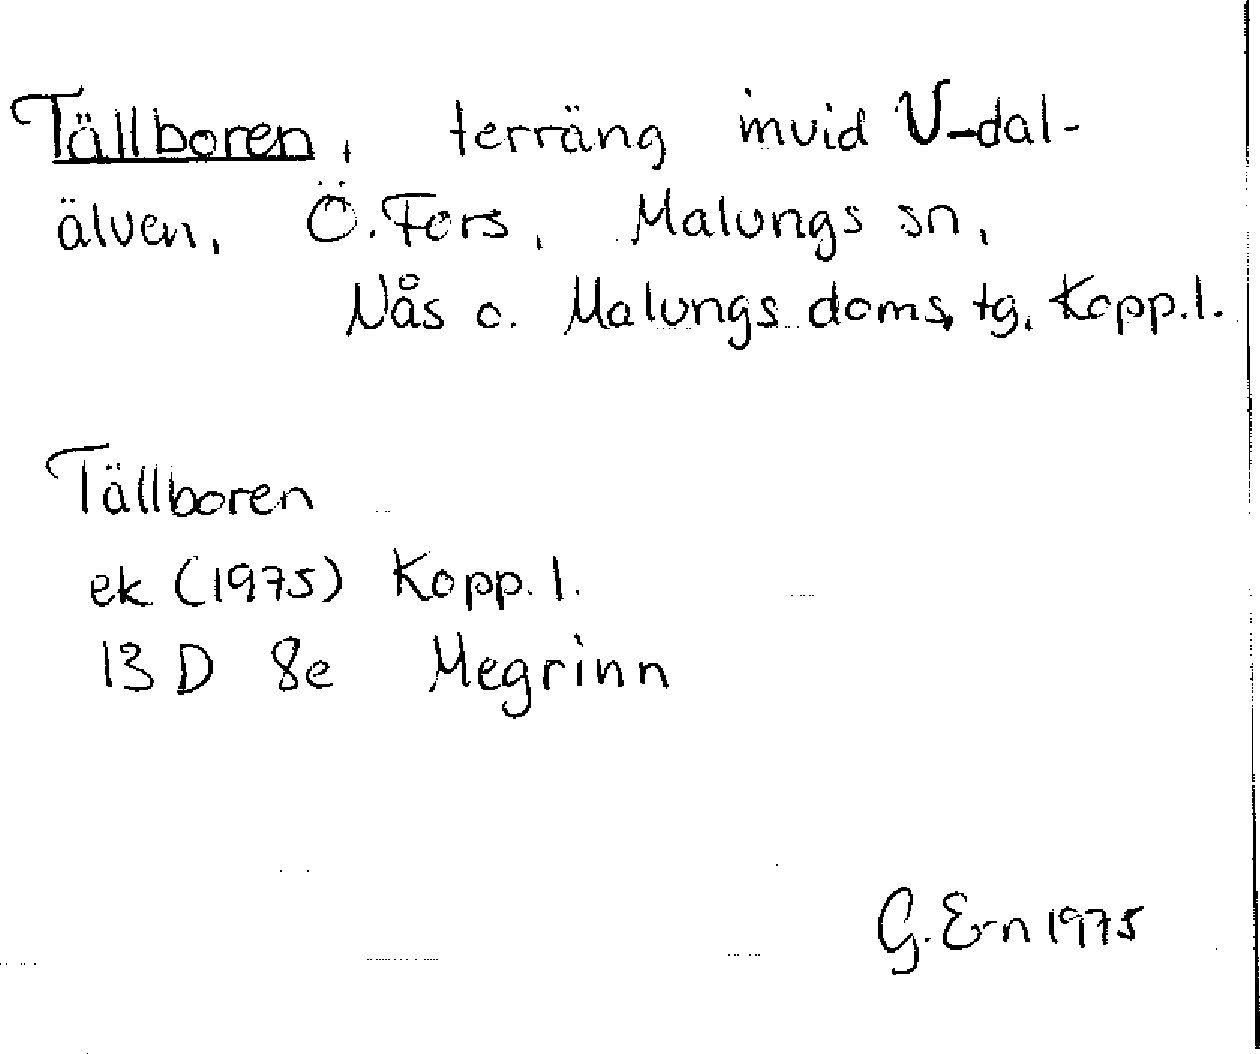 Tällboren, terräng invid V-dal-
älven, Ö. Fors, Malungs sn,
Nås o. Malungs doms. tg, Kopp.l.
Tällboren
ek (1975) Kopp. l.
13 D 8e Megrinn
G. Ern 1975